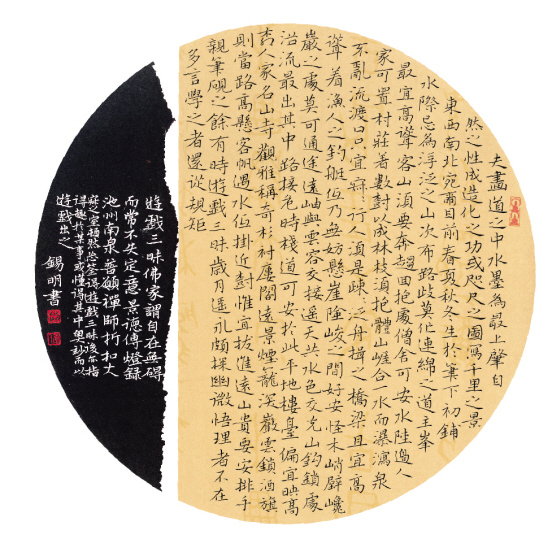 夫畫道之中水墨為最上肇自
然之性成造化之功或咫尺之圖寫千里之景
東西南北宛爾目前春夏秋冬生於筆下初鋪
水際忌為浮泛之山次布路歧莫作連綿之道主峯
最宜高聳客山須要奔趨迴抱處僧舍可安水陸邊人
家可置村莊著數對以成林枝須抱體山崖合一水而瀑瀉泉
不亂流渡口只宜寂人行須是疎泛舟楫之橋梁且宜高
聳着漁人之釣艇低乃無妨懸崖險峻之間好安怪木峭壁巉
巖之處莫可通途遠岫與雲容交接遙天共水色交光山鉤鎖處
沿流最出其中路接危時棧道可安於此平地樓臺偏宜映高
人家名山寺觀雅稱奇杉衬閣遠景煙籠深巖雲鎖酒旗
則當路高懸客帆遇水低掛近對惟宜拔遠山貴要安排手
親筆硯之餘有時遊戲三昧歲月遙永頗探幽微悟理者不在
多言學之者還從規矩
遊戲三昧佛家謂自在無礙
而常不失定意景德傳燈錄
池州南泉普願禪師折扣大
寂之室頓然忘筌得遊戲三昧後亦指
得趣於某事或懂得其中奧妙而以
遊戲出之
錫明書